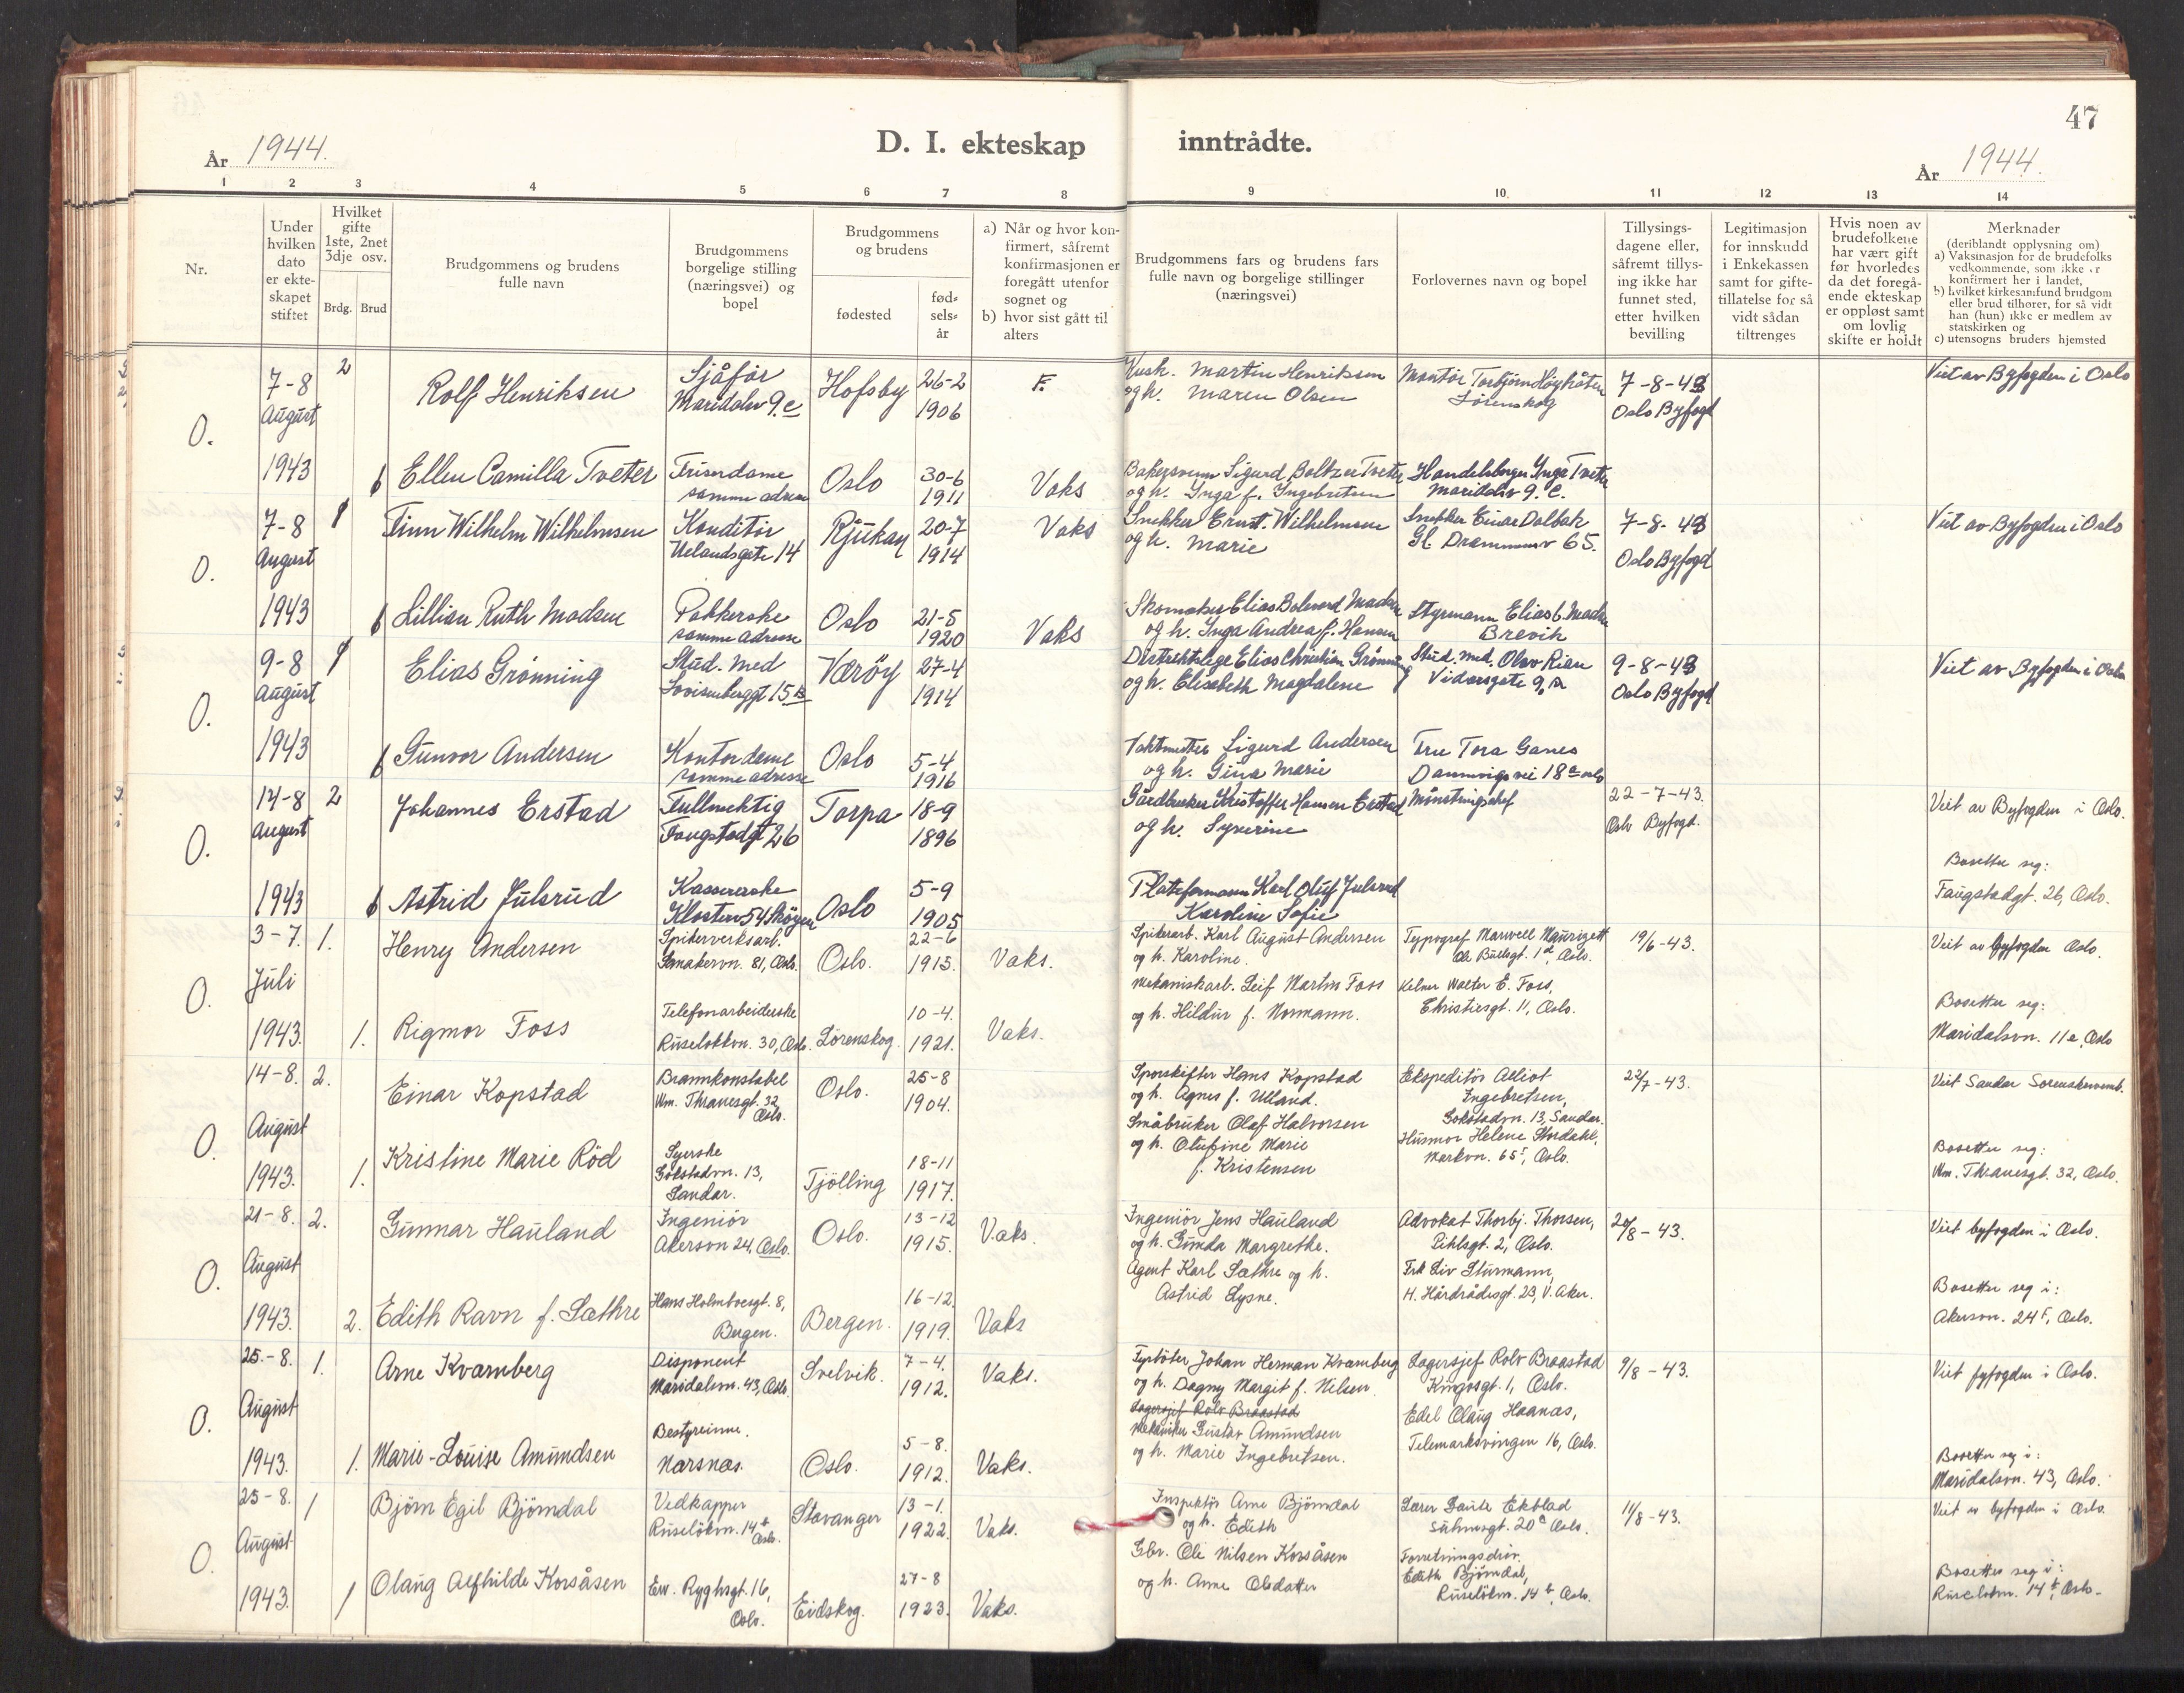 47
D. I. ekteskap inntrådte.
År 1944.
År 1944.
1 2 3 4 5 6 7 8 9 10. 11 12 13 14
Nr.
Under hvilken dato er ekteskapet stiftet
Hvilket gifte 1ste, 2net 3dje osv.
Brdg. Brud
Brudgommens og brudens fulle navn
Brudgommens borgelige stilling (næringsvei) og bopel
Brudgommens og brudens
fødested
fødselsår
a) Når og hvor konfirmert, såfremt konfirmasjonen er foregått utenfor sognet og
b) hvor sist gått til alters
Brudgommens fars og brudens fars fulle navn og borgelige stillinger (næringsvei)
Forlovernes navn og bopel
Tillysingsdagene eller, såfremt tillysing ikke har funnet sted, etter hvilken bevilling
Legitimasjon for innskudd i Enkekassen samt for giftetillatelse for så vidt sådan tiltrenges
Hvis noen av brudefolkene har vært gift før hvorledes da det foregående ekteskap er oppløst samt om lovlig skifte er holdt
Merknader
(deriblandt opplysning om)
a) Vaksinasjon for de brudefolks vedkommende, som ikke er konfirmert her i landet,
b) hvilket kirkesamfund brudgom eller brud tilhører, for så vidt han (hun) ikke er medlem av statskirken og
c) utensogns bruders hjemsted
O.
7-8 August 1943
2
Rolf Henriksen
Sjåfør
Maridalsv 9.c
Hofsby
26-2 1906
F.
Kusk. Martin Henriksen
og h. Maren Olsen
Montör Torbjörn
Lörenskog
7-8-43
Oslo Byfogd
Viet av Byfogden i Oslo
Ellen Camilla Tveter
Friserdame
samme adresse
Oslo
30-6 1911
Vaks
Bakersvenn Sigurd Boltzer Tveter
og h. Inga f. Ingebretsen
Inga Tveter
Maridalsv 9. C.
O.
7-8 August 1943
1
Finn Wilhelm Wilhelmsen
Konditor
Uelandsgate 14
Rjukan
20-7 1914
Vaks
Snekker Ernst. Wilhelmsen
og h. Marie
Snekker Einar Dalbak
Gl. Drammensv 65.
7-8-43
Oslo Byfogd
Viet av Byfogden i Oslo
Lillian Ruth Madsen
Pakkerske
samme adresse
Oslo
21-5 1920
Vaks
Skomaker Elias Madsen
og h. Inga Andrea f. Hansen
Styrmann Elias Madsen
Brevik
O.
9-8 August 1943
1
Elias Grönning
Stud. med
Lovisenberggt 15 B
Værøy
27-4 1914
Distriktslege Elias Christian Grönning
og h. Elisabeth Magdalene
Stud. med. Olav Rian
Vidarsgate 9, a
9-8-43
Oslo Byfogd
Viet av Byfogden i Oslo
Gunvor Andersen
Kontordame
samme adresse
Oslo
5-4 1916
Vaktmester Sigurd Andersen
og h. Gina Marie
Fru Tora Ganes
Dannevigsvei 18 c oslo
O.
14-8 August 1943
2
Johannes Erstad
Fullmektig
Faugstadgt 26
Torpa
18-9 1896
Gårdbruker Kristoffer Hansen Erstad
og h. Syverine
Mönstringschef
22-7-43.
Oslo Byfogd.
Viet av Byfogden i Oslo.
Astrid Julsrud
Kassererske
Klosterv 54 Skøyen
Oslo
5-9 1905
Plateformann Karl Oluf Julsrud
Karoline Sofie
Bosetter seg:
Faugstadgt. 26, Oslo.
O.
3-7. Juli 1943.
1.
Henry Andersen
Spikerverksarb.
Smakervn. 81, Oslo.
Oslo.
22-6 1915.
Vaks.
Spikerarb. Karl August Andersen
og h. Karoline.
Typograf Marwell Maurizett
Ole Bullsgt. 1 d, Oslo.
19/6-43.
Viet av byfogden Oslo.
1.
Rigmor Foss
Telefonarbeiderske
Ruselökkvn. 30, Oslo.
Lörenskog.
10-4. 1921.
Vaks.
Mekaniskarb. Leif Martin Foss
og h. Hildur f. Normann.
Kelner Walter E. Foss,
Christiesgt. 11, Oslo.
Bosetter seg:
Maridalsvn. 11 a, Oslo
O.
14-8. August 1943.
2.
Einar Kopstad
Brannkonstabel
Wm. Thranesgt. 32
Oslo.
Oslo.
25-8 1904.
Sporskifter Hans Kopstad
og h. Agnes f. Ulland.
Ekspeditör Alliot
Ingebretsen,
Gokstadvn. 13, Sandar.
22/7-43.
Viet Sandar Sorenskriveremb.
1.
Kristine Marie Röd
Syerske
Gokstadvn. 13,
Sandar.
Tjölling
18-11 1917.
Småbruker Olaf Halvorsen
og h. Olufine Marie
f. Kristensen
Husmor Helene Stordahl,
Markvn. 65 I, Oslo.
Bosetter seg:
Wm. Thranesgt. 32, Oslo.
O.
21-8. August 1943.
2.
Gunnar Hauland
Ingeniör
Akersvn 24, Oslo.
Oslo.
13-12 1915.
Vaks.
Ingeniör Jens Hauland
og h. Gunda Margrethe.
Advokat Thorbj. Thorsen,
Pihlsgt. 2, Oslo.
20/8-43.
Viet byfogden i Oslo.
2.
Edith Ravn f. Sæthre
Hans Holmboesgt. 8,
Bergen.
Bergen.
16-12. 1919.
Vaks
Agent Karl Sæthre og h.
Astrid Lysne.
Frk Liv Sturmann,
H. Hårdrådesgt. 23, V. Aker.
Bosetter seg i:
Akersvn. 24 F, Oslo.
O.
25.-8. August 1943.
1.
Arne Kvarnberg
Disponent
Maridalsvn. 43, Oslo.
Svelvik.
7-4. 1912.
Vaks.
Fyrböter Johan Herman Kvarnberg
og h. Dagny Margit f. Nilsen.
Lagersjef Rolv Braastad
Lagersjef Rolv Braastad
Kingosgt. 1, Oslo.
9/8-43.
Viet fyfogden i Oslo.
1.
Marie-Louise Amundsen
Bestyrerinne.
Narsnæs.
Oslo.
5-8. 1912.
Vaks.
Mekaniker Gustav Amundsen
og h. Marie Ingebretsen.
Edel Olaug Haanæs,
Telemarksvingen 16, Oslo.
Bosetter seg i:
Maridalsvn. 43, Oslo.
O.
25-8. August 1943.
1
Björn Egil Björndal
Vedkapper
Ruselökvn. 14 b
Oslo.
Stavanger
13-1. 1922.
Vaks.
Inspektör Arne Björndal
og h. Edith
Lærer Daute Ekblad
Suhmsgt. 20 a Oslo.
11/8-43.
Viet av byfogden i Oslo.
1
Olaug Alfhilde Korsåsen
Ew. Ryghsgt. 16,
Oslo.
Eidskog.
27-8 1923.
Vaks.
Gbr. Ole Nilsen Korsåsen
og h. Anne Olsdatter
Forretningsdriv.
Edith Björndal,
Ruselökvn. 14 b, Oslo.
Bosetter seg i:
Ruselökvn. 14 b, Oslo.